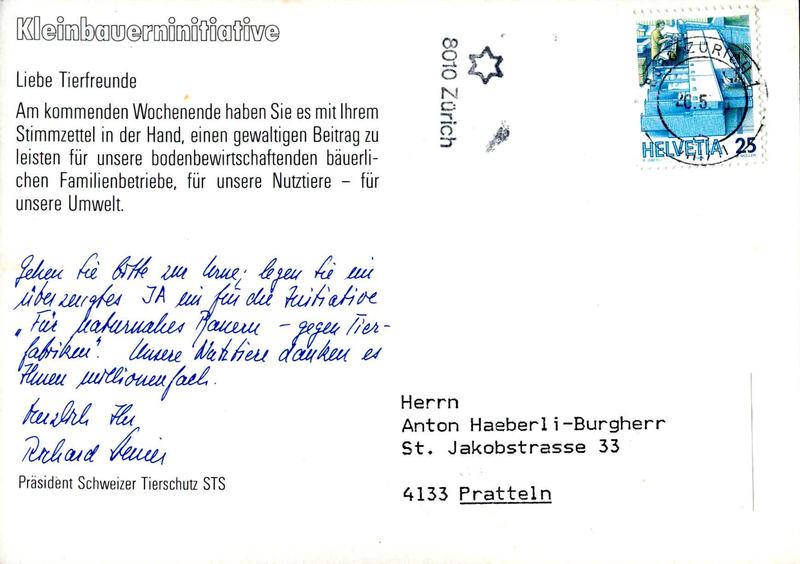 Kleinbauerninitiative
Liebe Tierfreunde
Am kommenden Wochenende haben Sie es mit Ihrem
Stimmzettel in der Hand, einen gewaltigen Beitrag zu
leisten für unsere bodenbewirtschaftenden bäuerli-
chen Familienbetriebe, für unsere Nutztiere – für
unsere Umwelt.
Gehen Sie bitte zur Urne; legen Sie ein
überzeugtes JA ein für die Initiative
„Für naturnahes Bauern – gegen Tier-
fabriken". Unsere Nutztiere danken es
Ihnen millionenfach.
Herzlich Ihr
Richard
Präsident Schweizer Tierschutz STS
8010 Zürich
ZÜRICH
26.5
HELVETIA 25
Herrn
Anton Haeberli-Burgherr
St. Jakobstrasse 33
4133 Pratteln